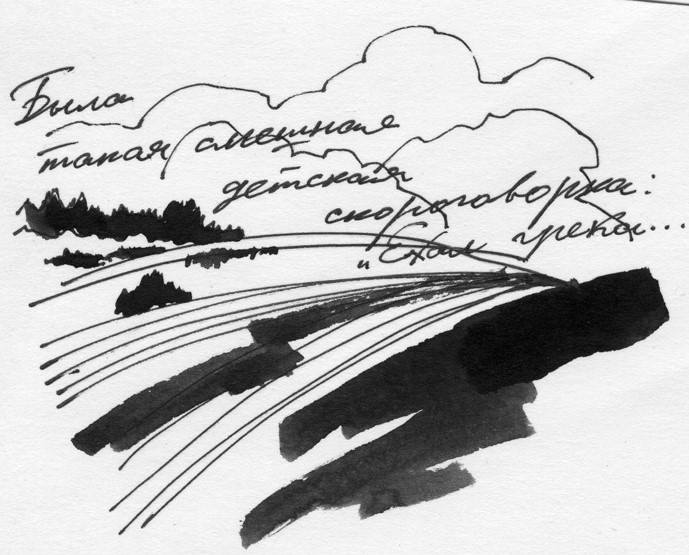 Была
такая смешная
детская
скороговорка:
„Ехал грека...